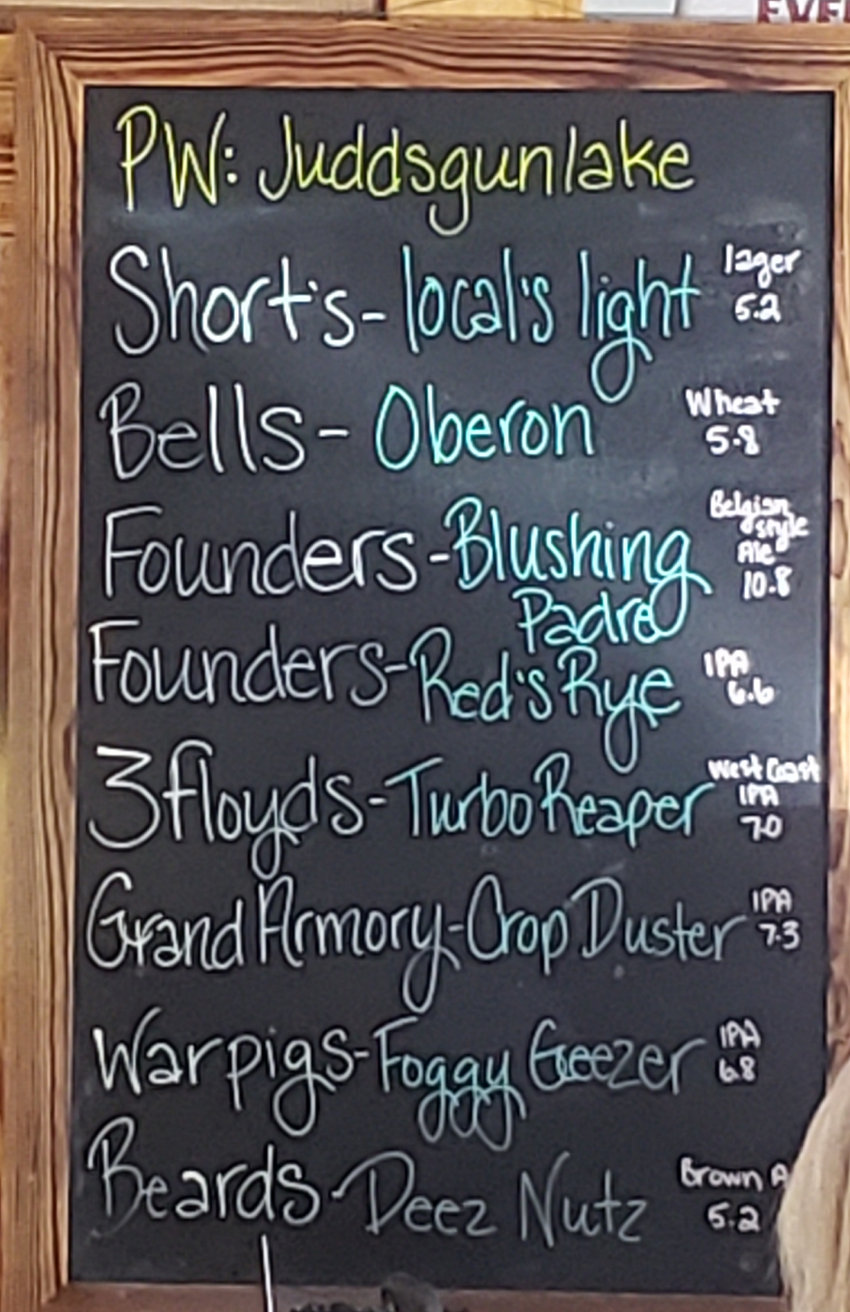 EVE
PW: Juddsgunlake
Short's - local's light lager
5.2
Bells - Oberon Wheat
5.8
Founders - Blushing Padre Belgian
style
Ale
10.8
Founders - Red's Rye IPA
6.6
3 floyds - Turbo Reaper West Coast
IPA
7.0
Grand Armory - Crop Duster IPA
7.3
Warpigs - Foggy Geezer IPA
6.8
Beards - Deez Nutz Brown A
5.2